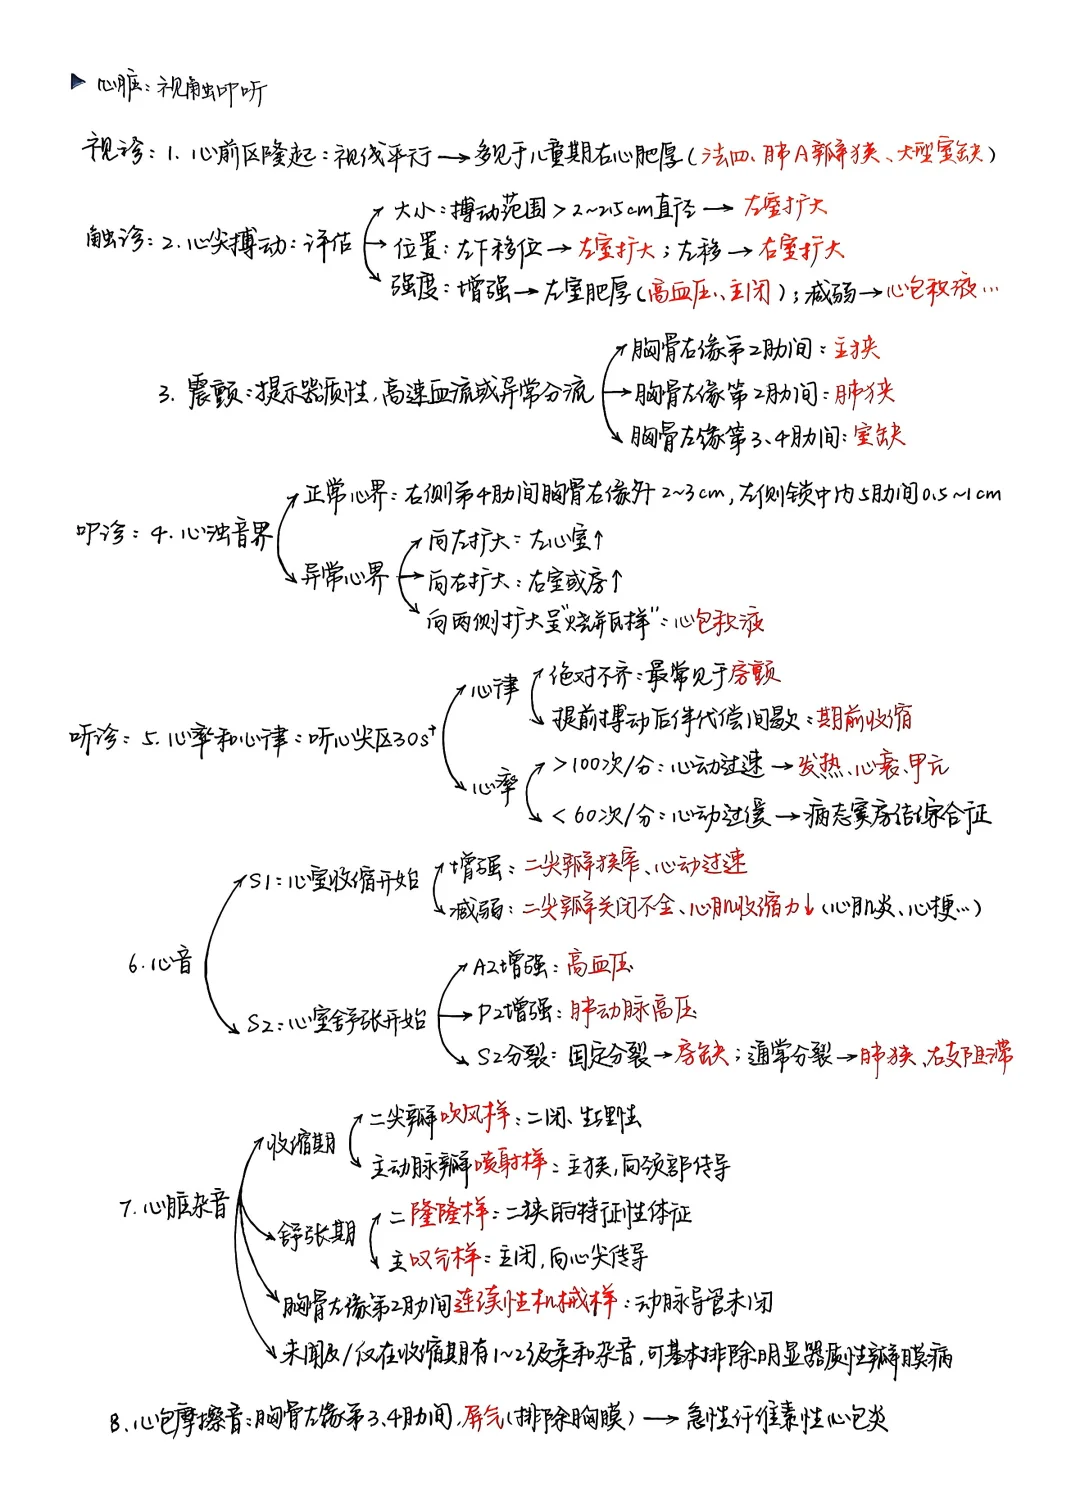 心脏:视触叩听
视诊:1.心前区隆起:视线平行→多见于儿童期右心肥厚(法四、肺A瓣狭、大型室缺)
大小:搏动范围>2~2.5cm直径→左室扩大
触诊:2.心尖搏动:评估
位置:左下移位→左室扩大;左移→右室扩大
强度:增强→左室肥厚(高血压、主闭);减弱→心包积液…
胸骨右缘第2肋间:主狭
3.震颤:提示器质性,高速血流或异常分流
胸骨左缘第2肋间:肺狭
胸骨左缘第3、4肋间:室缺
正常心界:右侧第4肋间胸骨右缘外2~3cm,左侧锁中内5肋间0.5~1cm
叩诊:4.心浊音界
向左扩大:左心室↑
异常心界
向右扩大:右室或房↑
向两侧扩大呈"烧瓶样":心包积液
心律
绝对不齐:最常见于房颤
提前搏动后伴代偿间歇:期前收缩
听诊:5.心率和心律:听心尖区30s+
心率
>100次/分:心动过速→发热、心衰、甲亢
<60次/分:心动过缓→病态窦房结综合征
S1:心室收缩开始
增强:二尖瓣狭窄、心动过速
减弱:二尖瓣关闭不全、心肌收缩力↓(心肌炎、心梗…)
6.心音
A2增强:高血压
S2:心室舒张开始
P2增强:肺动脉高压
S2分裂:固定分裂→房缺;通常分裂→肺狭、右支阻滞
收缩期
二尖瓣吹风样:二闭、生理性
主动脉瓣喷射样:主狭,向颈部传导
7.心脏杂音
舒张期
二隆隆样:二狭的特征性体征
主叹气样:主闭,向心尖传导
胸骨左缘第2肋间连续性机械样:动脉导管未闭
未闻及/仅在收缩期有1~2级柔和杂音,可基本排除明显器质性瓣膜病
8.心包摩擦音:胸骨左缘第3.4肋间,屏气(排除胸膜)→急性纤维素性心包炎